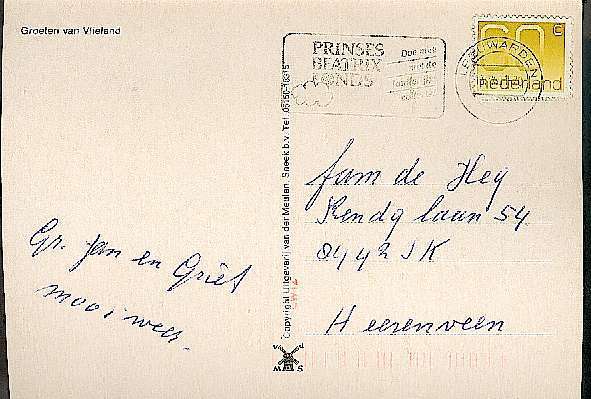 Groeten van Vlieland
PRINSES
BEATRIX
FONDS
Doe mee
met de
collecte
60 c
nederland
LEEUWARDEN
Copyright Uitgeverij van der Meulen, Sneek b.v. Tel. 05150-18315
Gr. Jan en Griet
mooi weer.
fam de Hey
laan 54.
8442 JK
Heerenveen